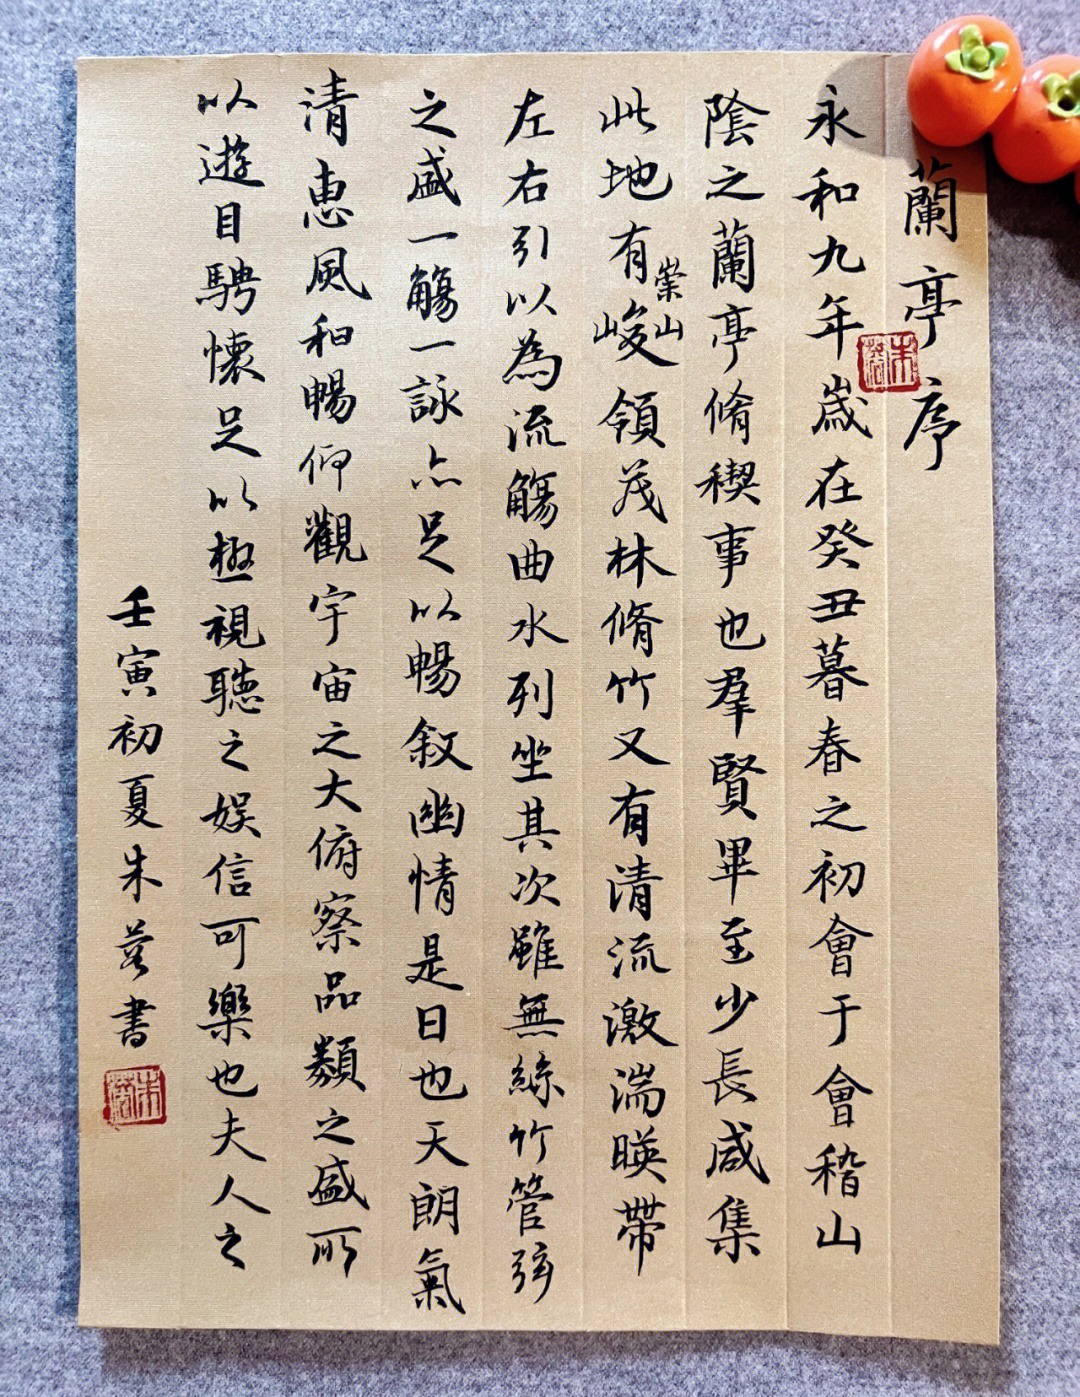 蘭亭序
永和九年歲在癸丑暮春之初會于會稽山
陰之蘭亭脩稧事也羣賢畢至少長咸集
此地有崇山峻領茂林脩竹又有清流激湍暎帶
左右引以為流觴曲水列坐其次雖無絲竹管弦
之盛一觴一詠亦足以暢敘幽情是日也天朗氣
清惠風和暢仰觀宇宙之大俯察品類之盛所
以遊目騁懷足以極視聽之娛信可樂也夫人之
壬寅初夏朱書